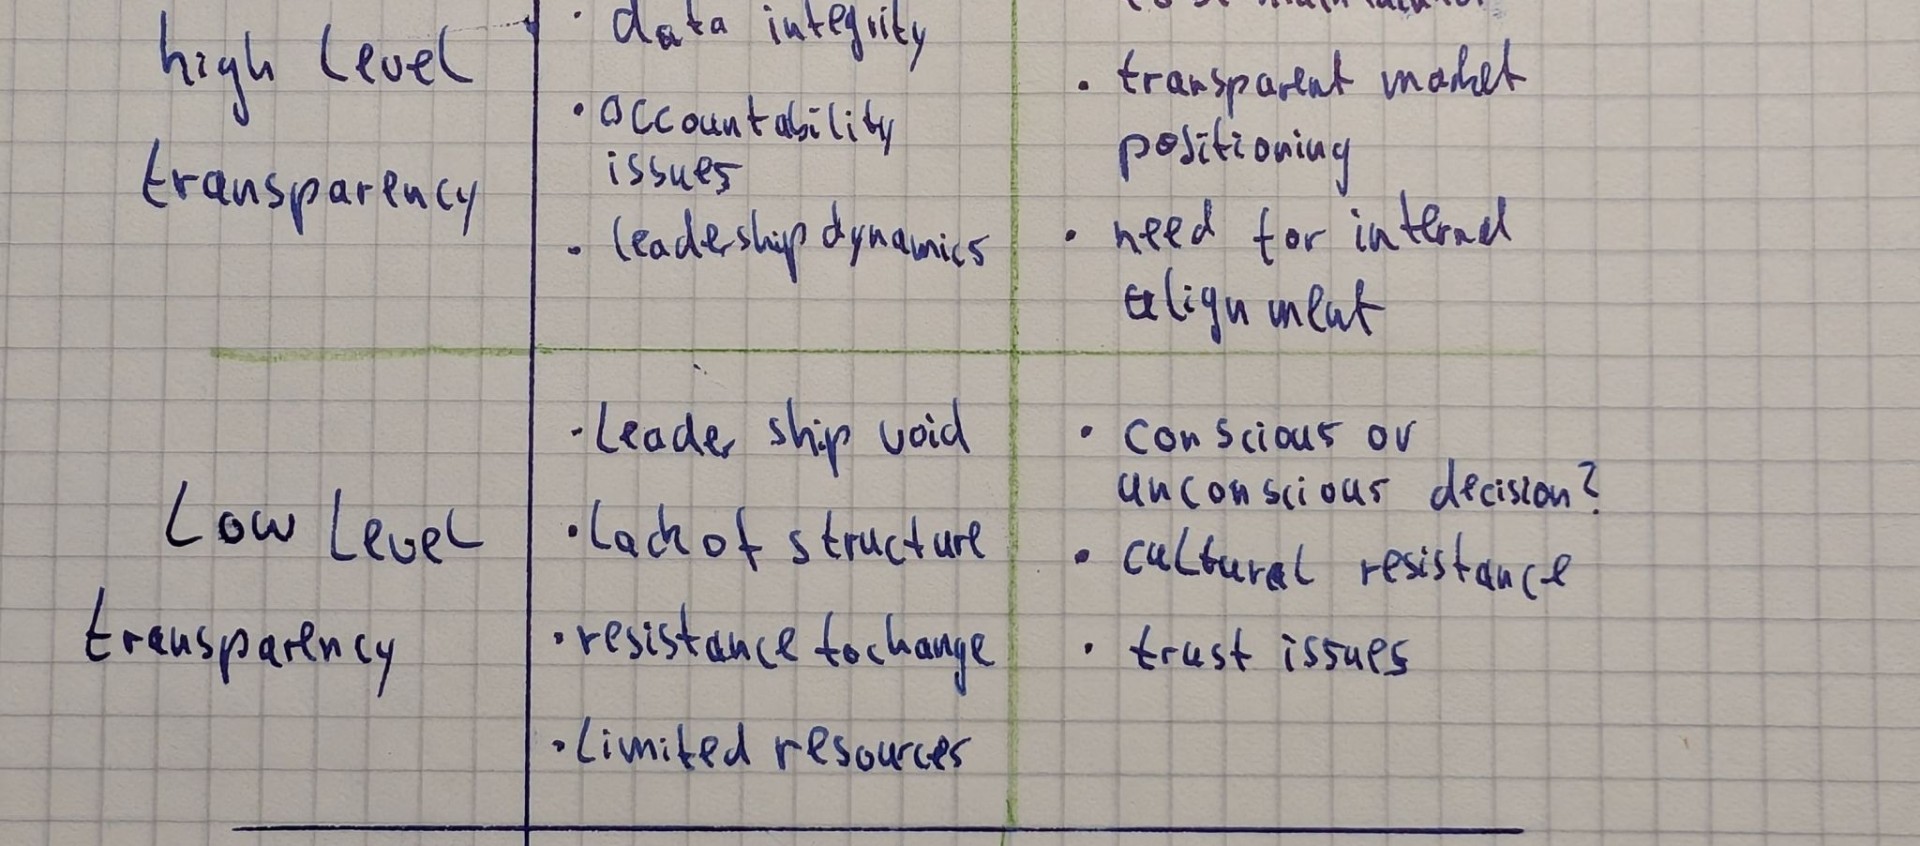 high level
transparency
· data integrity
· accountability
issues
· leadership dynamics
· transparent market
positioning
· need for internal
alignment
Low Level
transparency
· Leader ship void
· Lack of structure
· resistance to change
· Limited resources
· conscious or
unconscious decision?
· cultural resistance
· trust issues